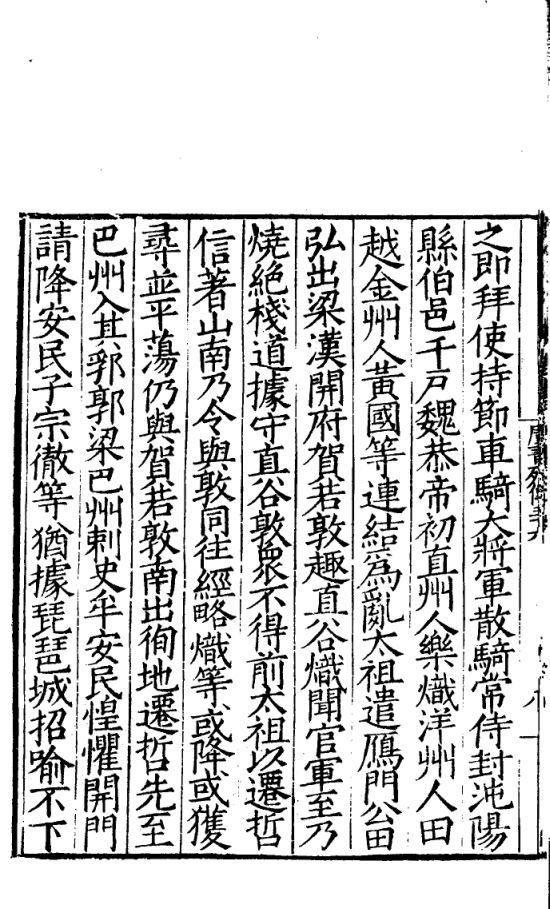 之即拜使持節車騎大將軍散騎常侍封沌陽
縣伯邑千戶魏恭帝初直州人樂熾洋州人田
越金州人黃國等連結為亂太祖遣鴈門公田
弘出梁漢開府賀若敦趣直谷熾聞官軍至乃
燒絕棧道據守直谷敦衆不得前太祖以遷哲
信著山南乃令與敦同往經略熾等或降或獲
尋並平蕩仍與賀若敦南出徇地遷哲先至
巴州入其郛郭梁巴州刺史牟安民惶懼開門
請降安民子宗徹等猶據琵琶城招喻不下